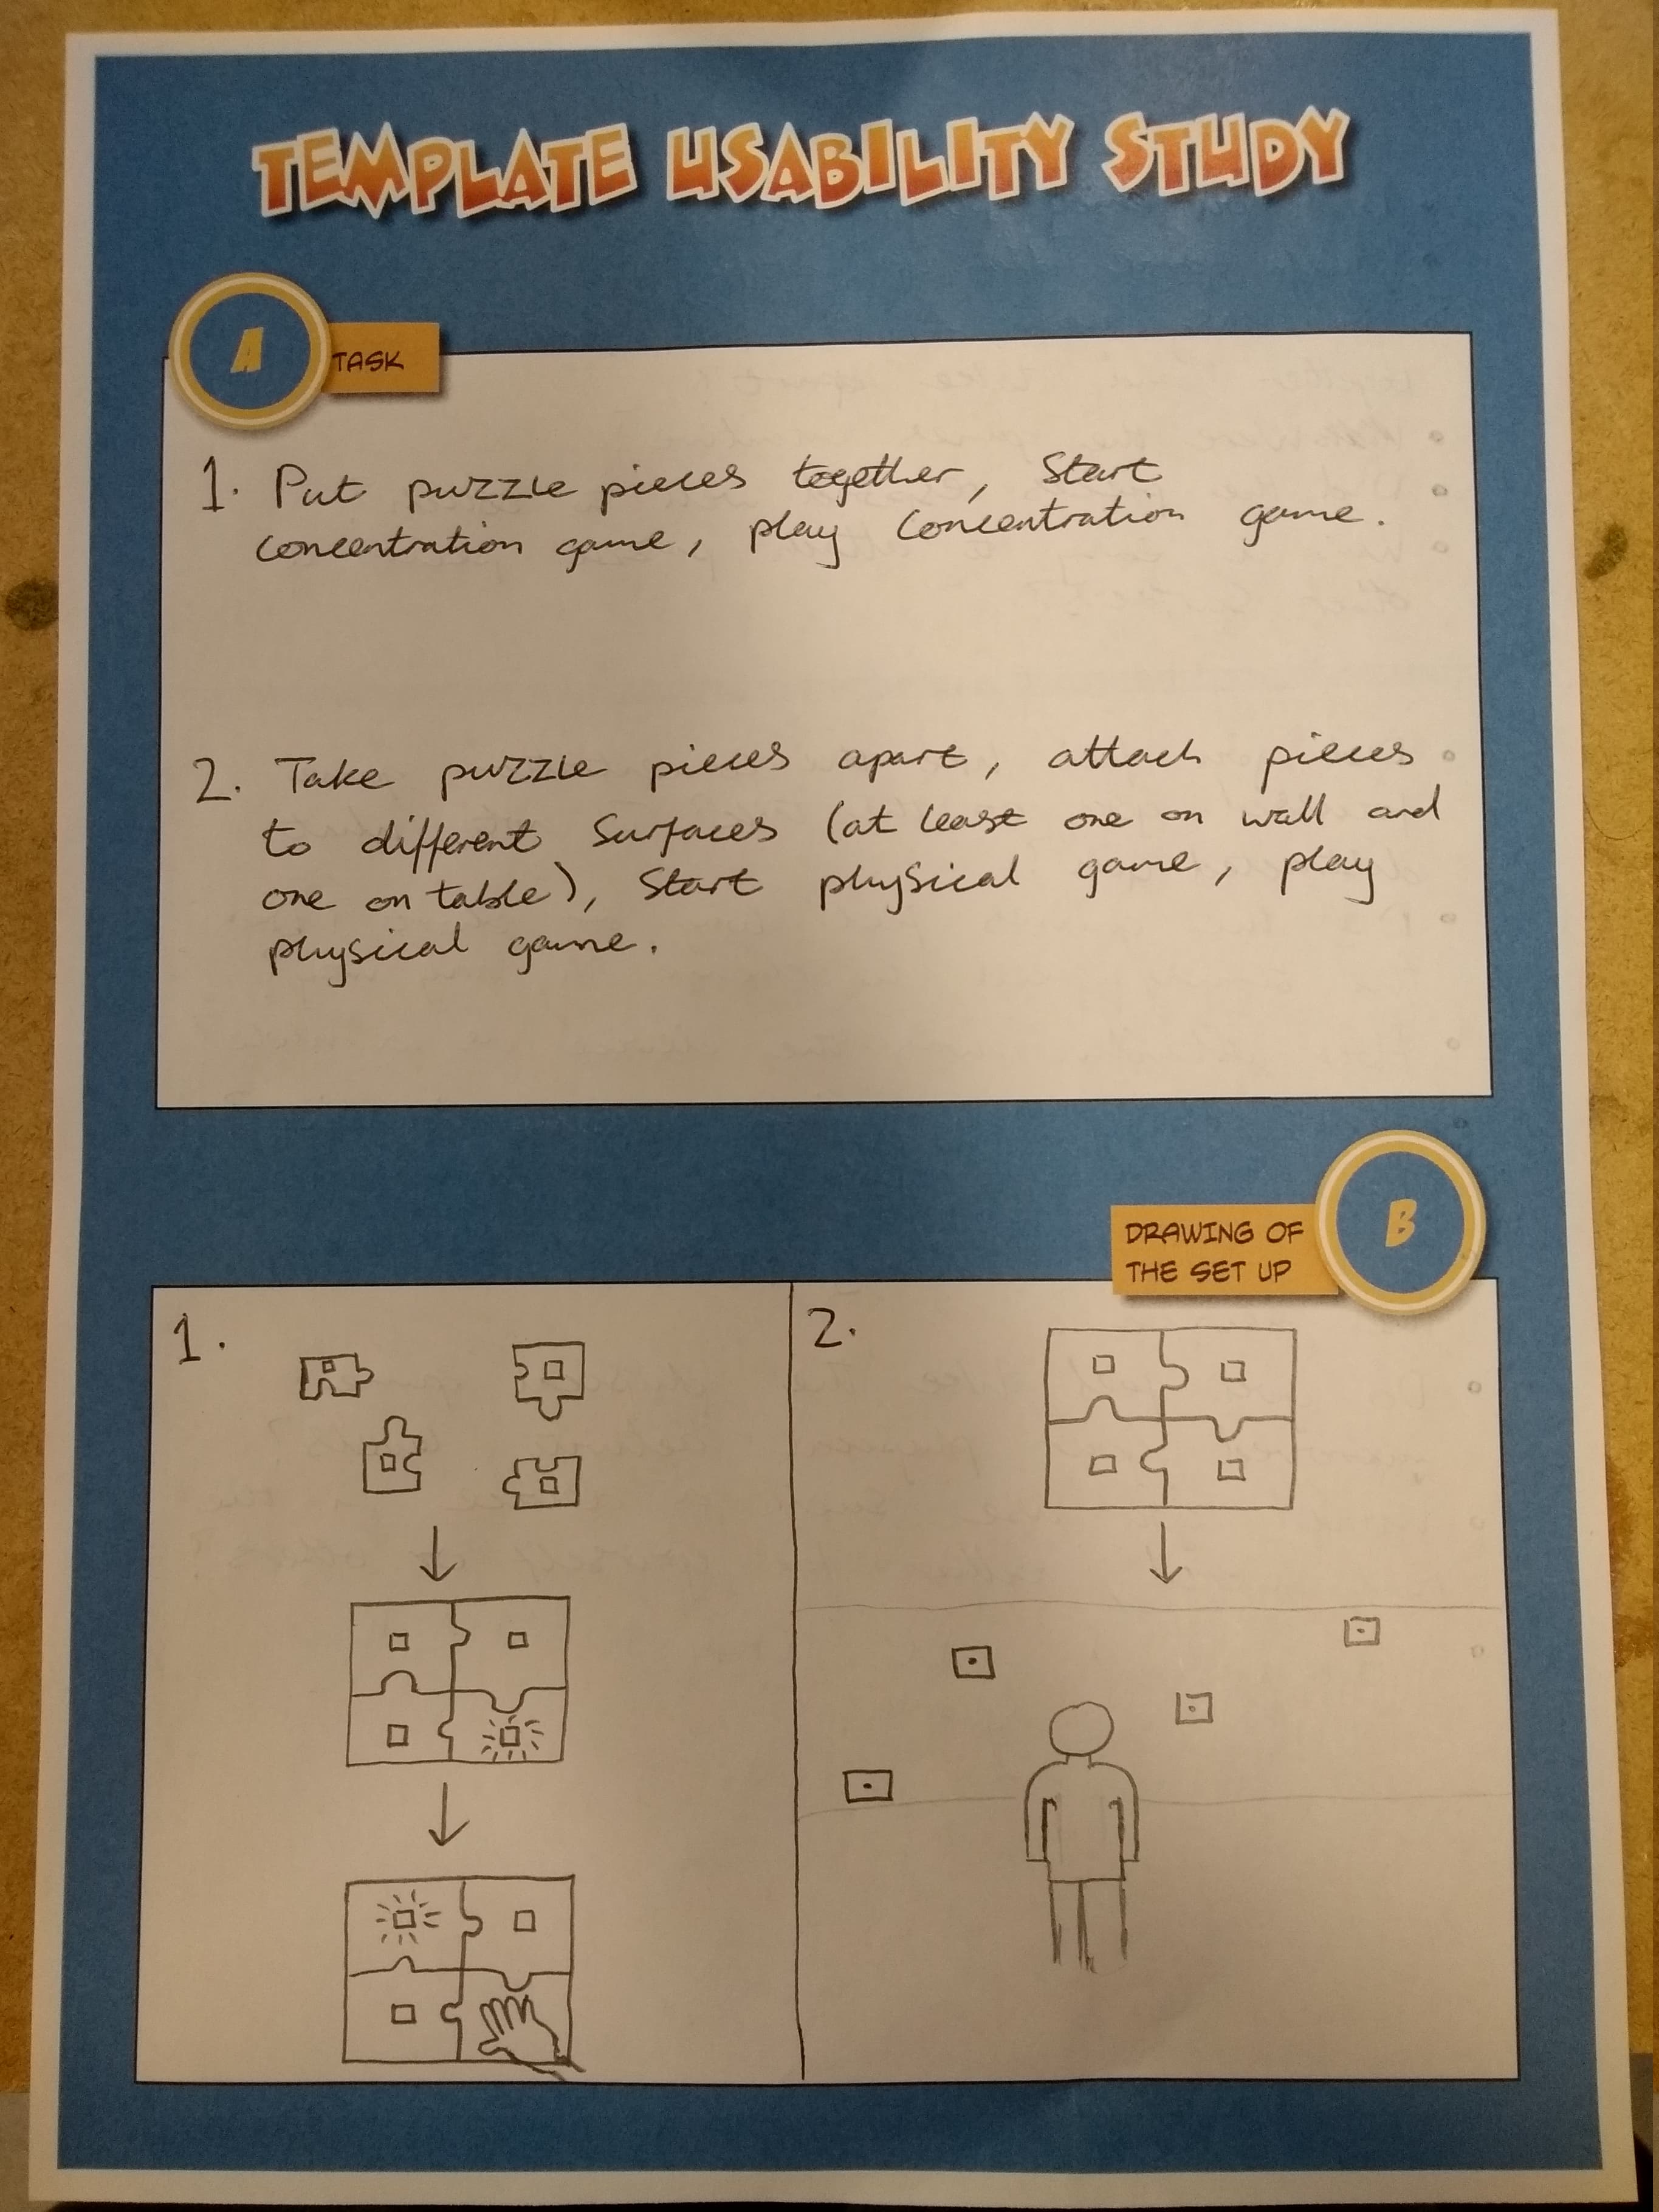 TEMPLATE USABILITY STUDY
A
TASK
1. Put puzzle pieces together, Start
concentration game, play concentration game.
2. Take puzzle pieces apart, attach pieces
to different surfaces (at least one on wall and
one on table), Start physical game, play
physical game.
B
DRAWING OF
THE SET UP
1.
2.